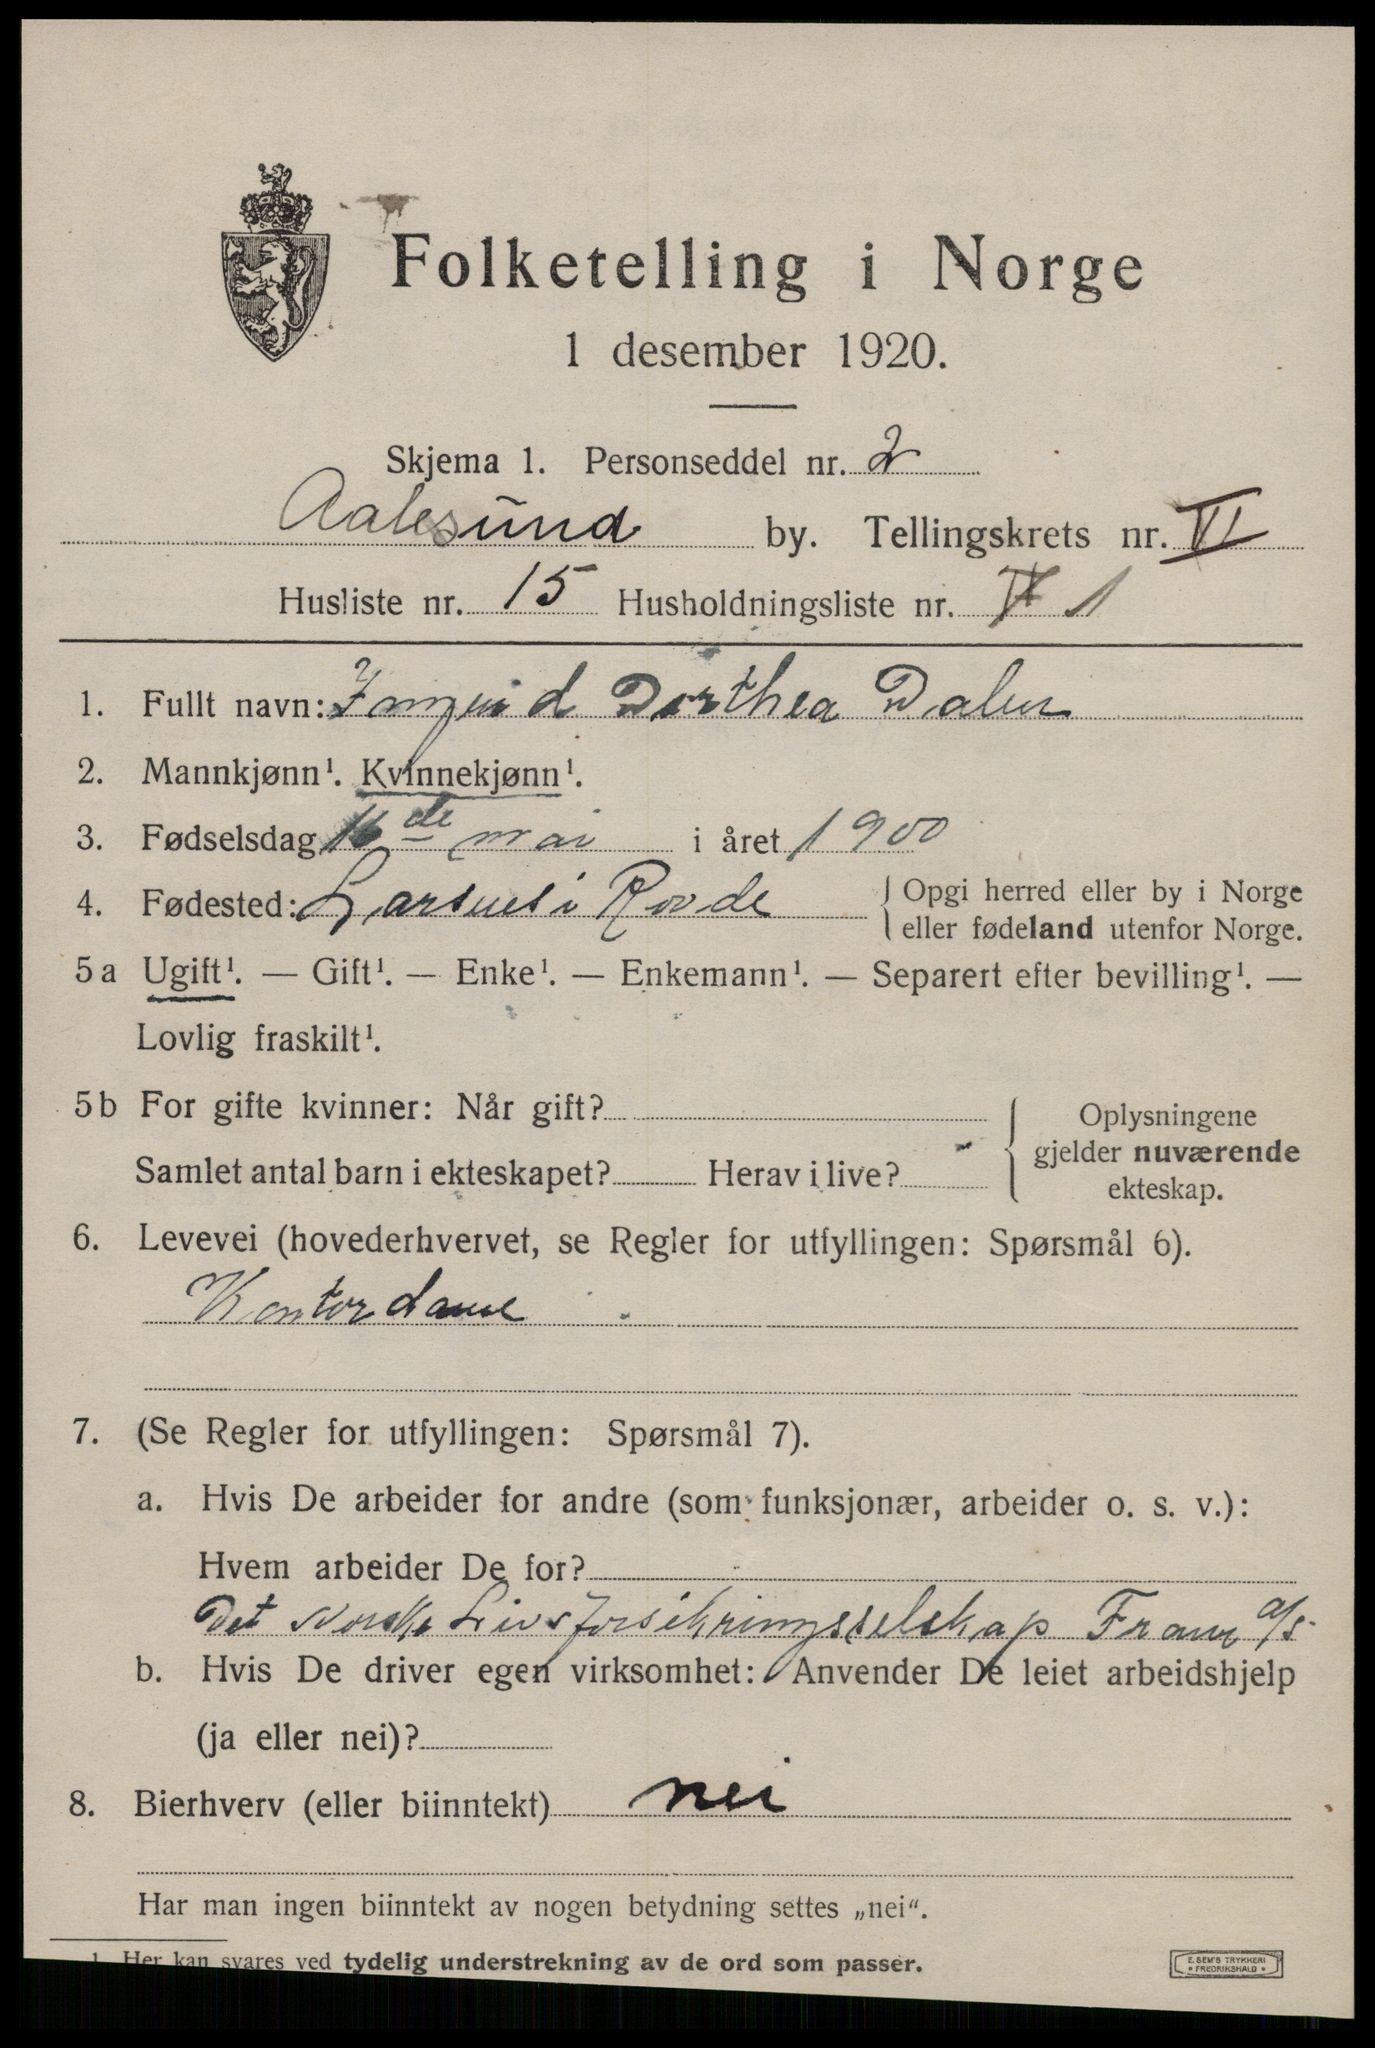 Folketelling i Norge
1 desember 1920.
Skjema 1. Personseddel nr. 2
Aalesund by. Tellingskrets nr. VI
Husliste nr. 15 Husholdningsliste nr. 1
1. Fullt navn: Ingrid Dorthea Dalen
2. Mannkjønn¹. Kvinnekjønn¹.
3. Fødselsdag 16de mai i året 1900
4. Fødested: Larsnes i Rovde { Opgi herred eller by i Norge
eller fødeland utenfor Norge.
5a Ugift¹. — Gift¹. — Enke¹. — Enkemann¹. — Separert efter bevilling¹. —
Lovlig fraskilt¹.
5b For gifte kvinner: Når gift?
Samlet antal barn i ekteskapet? Herav i live?
Oplysningene
gjelder nuværende
ekteskap.
6. Levevei (hovederhvervet, se Regler for utfyllingen: Spørsmål 6).
Kontordame
7. (Se Regler for utfyllingen: Spørsmål 7).
a. Hvis De arbeider for andre (som funksjonær, arbeider o. s. v.):
Hvem arbeider De for?
Det Norske Livsforsikringsselskap Fram a/s
b. Hvis De driver egen virksomhet: Anvender De leiet arbeidshjelp
(ja eller nei)?
8. Bierhverv (eller biinntekt) nei
Har man ingen biinntekt av nogen betydning settes „nei“.
1 Her kan svares ved tydelig understrekning av de ord som passer.
E. SEM'S TRYKKERI
• FREDRIKSHALD •